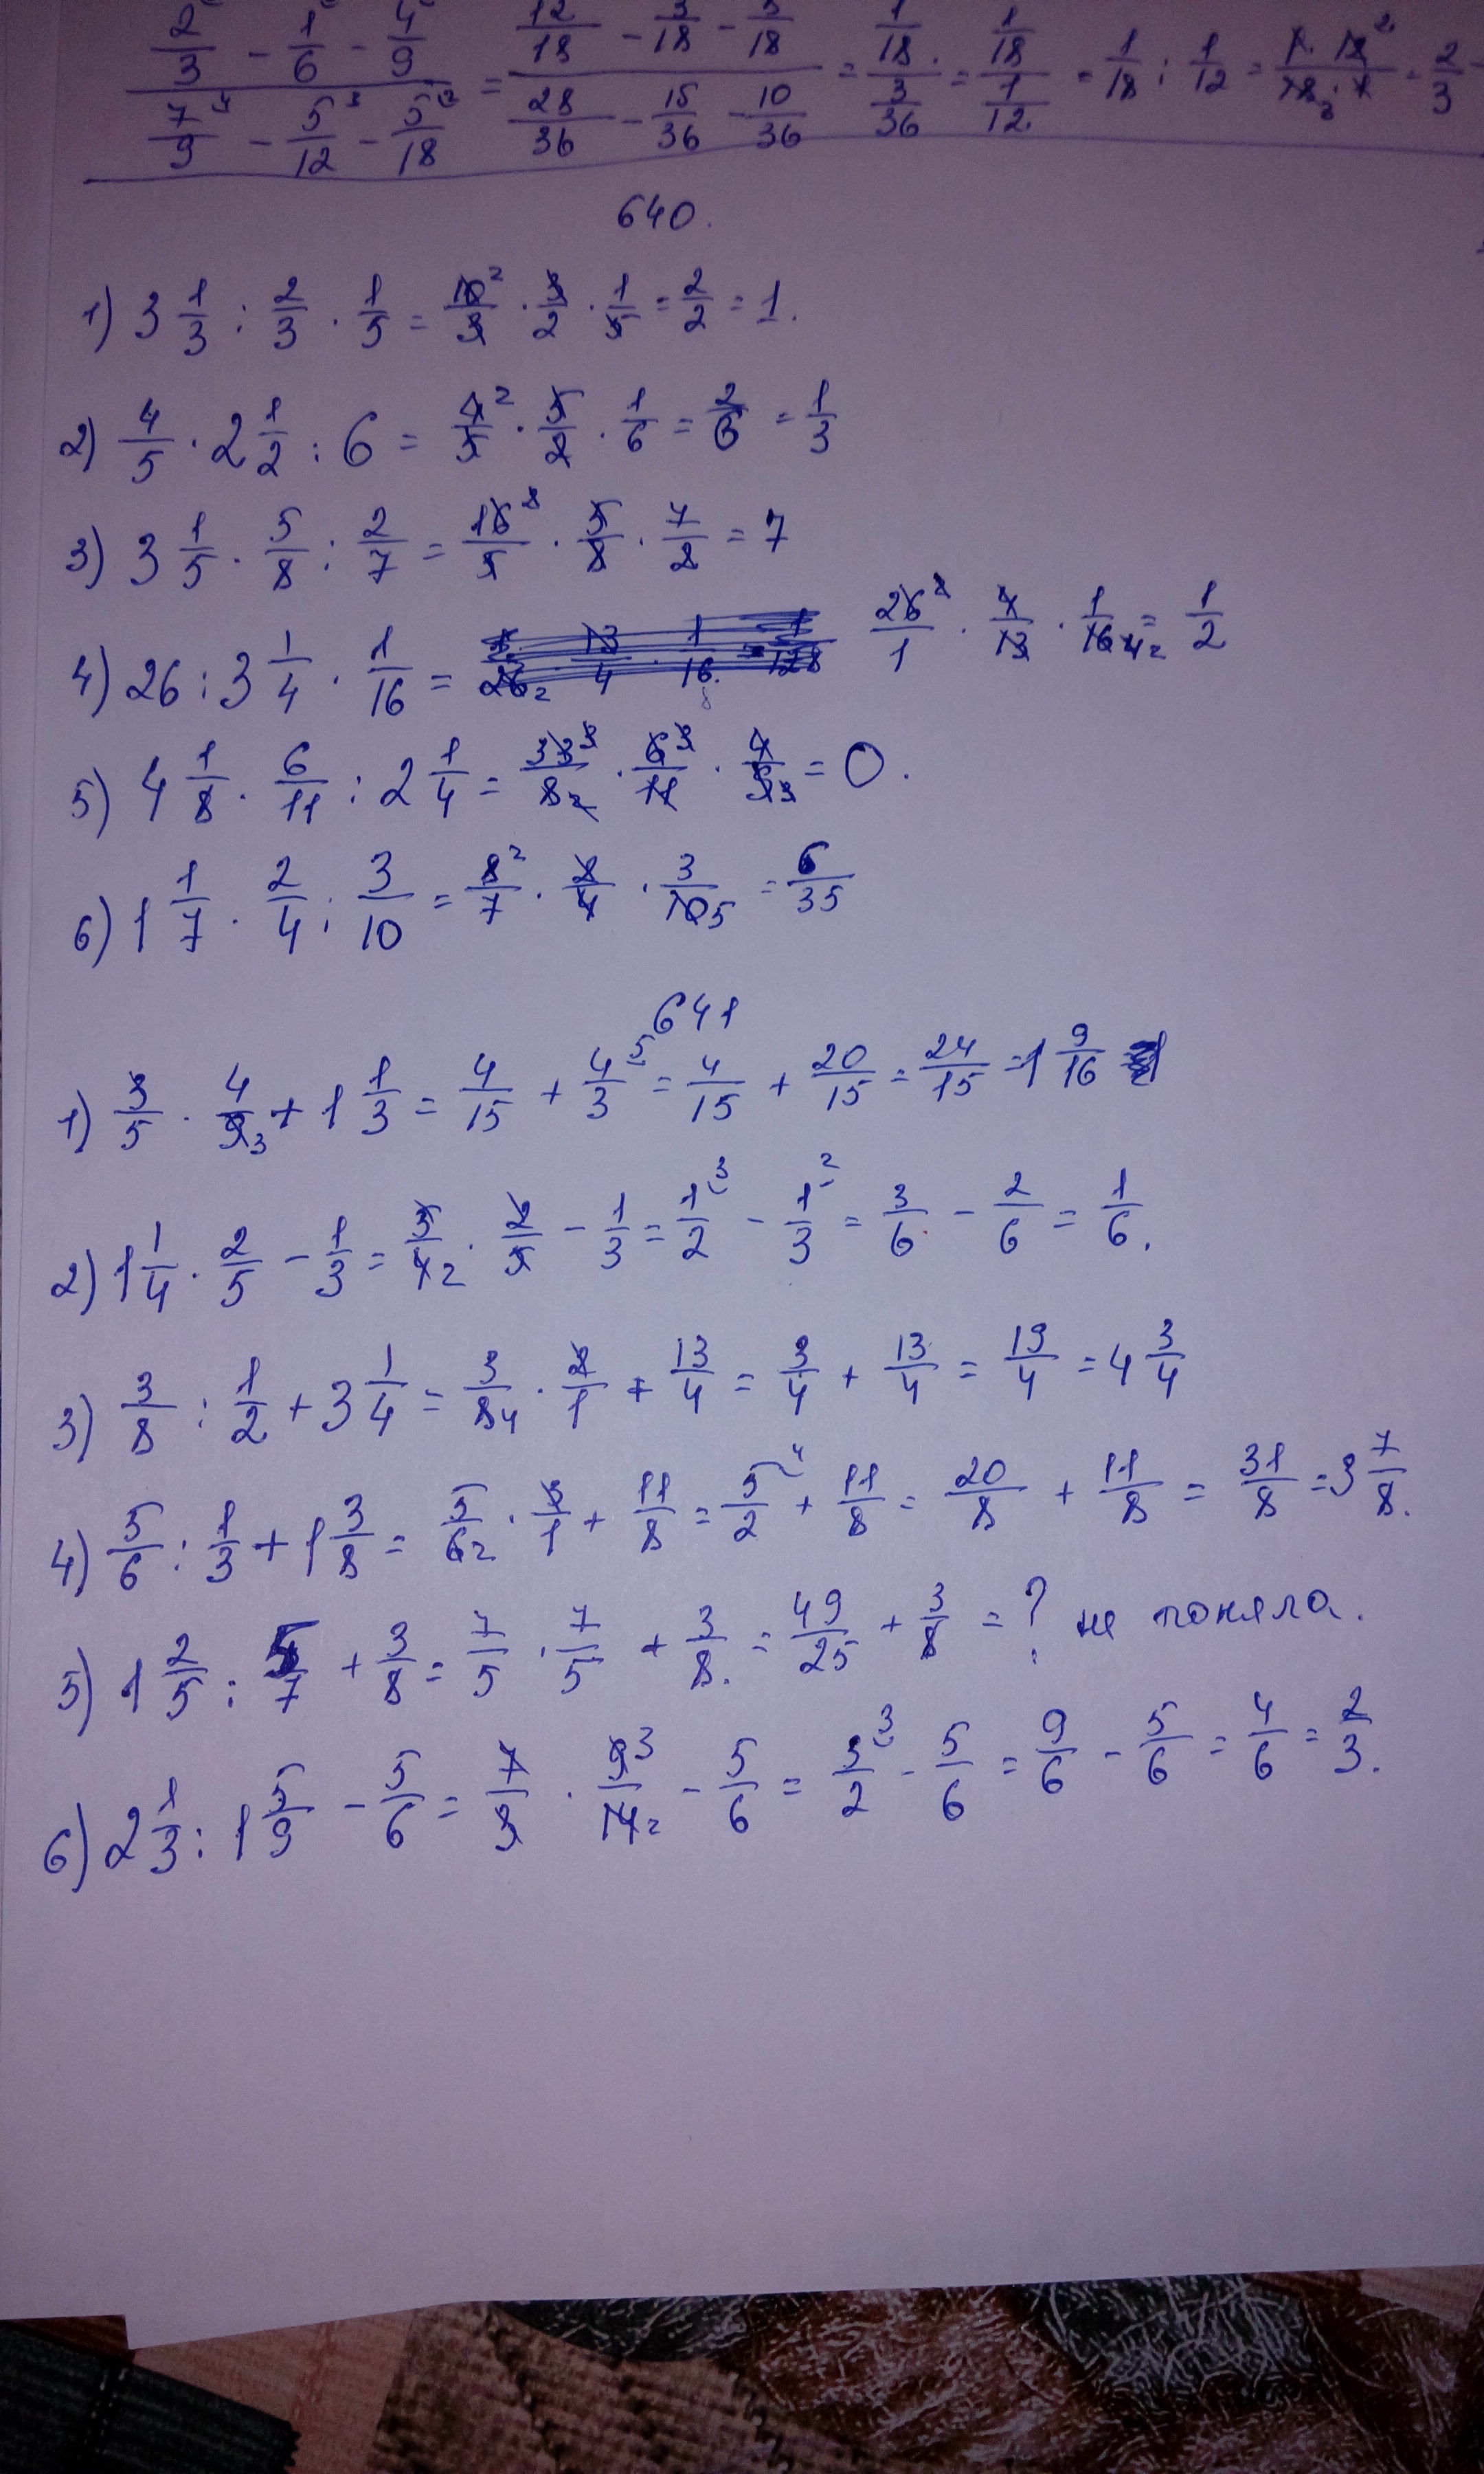 2/3 - 1/6 - 4/9 / 7/9 - 5/12 - 5/18 = 12/18 - 3/18 - / 28/36 - 15/36 - 10/36 = 1/18 / 3/36 = 1/18 / 1/12 = 1/18 : 1/12 = 1·12/18·1 = 2/3
640.
1) 3 1/3 : 2/3 · 1/5 = 10/3 · 3/2 · 1/5 = 2/2 = 1.
2) 4/5 · 2 1/2 : 6 = 4/5 · 5/2 · 1/6 = 2/6 = 1/3
3) 3 1/5 · 5/8 : 2/7 = 16/5 · 5/8 · 7/2 = 7
4) 26 : 3 1/4 · 1/16 = 26/1 · 4/13 · 1/16 = 1/2
5) 4 1/8 · 6/11 : 2 1/4 = 33/8 · 6/11 · 4/9 = 0.
6) 1 1/7 · 2/4 : 3/10 = 8/7 · 2/4 · 3/10 = 6/35
641
1) 3/5 · 4/9 + 1 1/3 = 4/15 + 4/3 = 4/15 + 20/15 = 24/15 = 1 9/16
2) 1 1/4 · 2/5 - 1/3 = 5/4 · 2/5 - 1/3 = 1/2 - 1/3 = 3/6 - 2/6 = 1/6.
3) 3/8 : 1/2 + 3 1/4 = 3/8 · 2/1 + 13/4 = 3/4 + 13/4 = 19/4 = 4 3/4
4) 5/6 : 1/3 + 1 3/8 = 5/6 · 3/1 + 11/8 = 5/2 + 11/8 = 20/8 + 11/8 = 31/8 = 3 7/8.
5) 1 2/5 : 5/7 + 3/8 = 7/5 · 7/5 + 3/8 = 49/25 + 3/8 = ? не поняла.
6) 2 1/3 : 1 5/9 - 5/6 = 7/3 · 9/14 - 5/6 = 3/2 - 5/6 = 9/6 - 5/6 = 4/6 = 2/3.